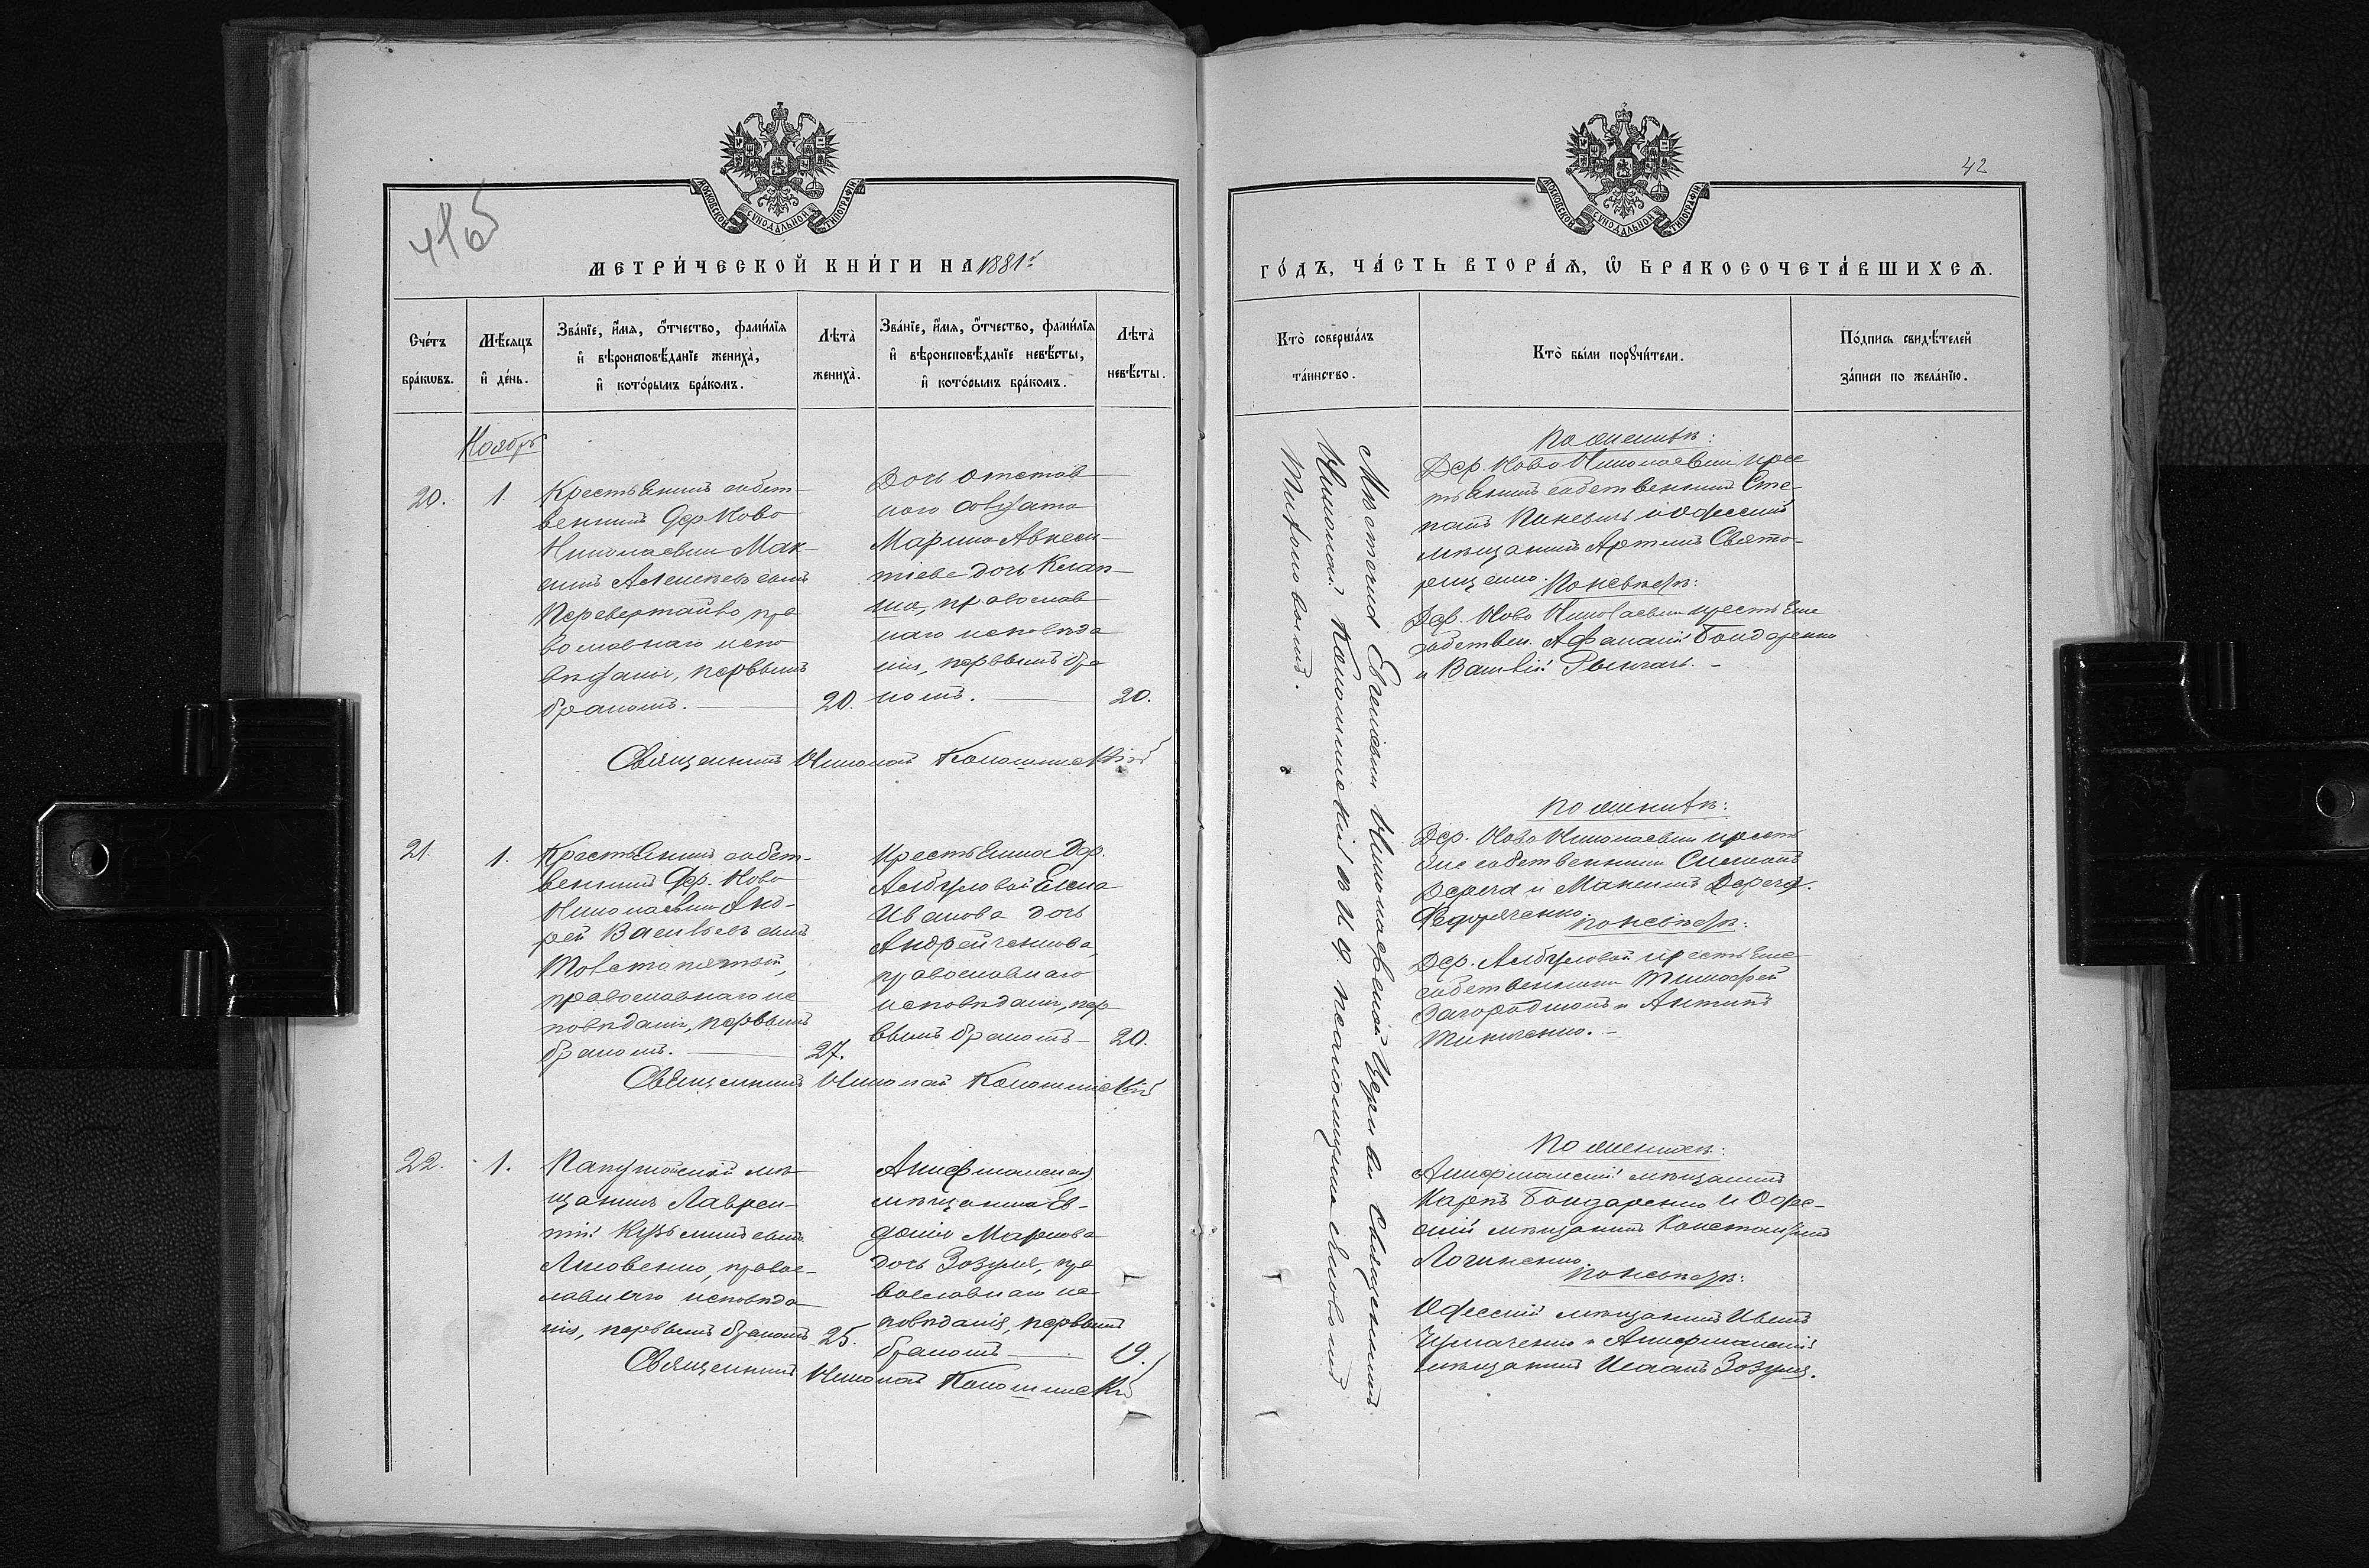 МОСКОВСКОЙ СѴНОДАЛЬНОЙ ТИПОГРАФІИ
4165
МЕТРИ́ЧЕСКОЙ КНИ́ГИ НА 1881й
Сче́тъ бра́кѡвъ.
Мѣ́сяцъ и҆ де́нь.
Зва́нїе, и҆́мя, ѻ҆́тчество, фами́лїя
и҆ вѣроисповѣ́данїе жениха̀,
и҆ кото́рымъ бра́комъ.
Лѣта̀ жениха̀.
Зва́нїе, и҆́мя, ѻ҆́тчество, фами́лїя
и҆ вѣроисповѣ́данїе невѣ́сты,
и҆ кото́рымъ бра́комъ.
Лѣта̀ невѣ́сты.
Ноябрь
20.
1.
Крестьянинъ собст-
венникъ дер. Ново
Николаевки Мак-
симъ Алексѣевъ сынъ
Перевертайло, пра
вославнаго испо
вѣданія, первымъ
бракомъ.
20.
Дочь отстав
наго солдата
Марина Авксен-
тіева дочь
православ
наго исповѣда
нія, первымъ бра
комъ.
20.
Священникъ Николай
21.
1.
Крестьянинъ собст-
венникъ дер. Ново
Николаевки Анд-
рей Васильевъ сынъ
Товстопятый,
православнаго ис
повѣданія, первымъ
бракомъ.
27.
Крестьянка Дер.
Елена
Иванова дочь
Андрейченкова,
православнаго
исповѣданія, пер
вымъ бракомъ
20.
Священникъ Николай
22.
1.
мѣ
щанинъ Лаврен-
тій Кузьминъ сынъ
Яковенко, правос-
лавнаго исповѣда
нія, первымъ бракомъ
25.
Аккерманская
мѣщанка Ев-
докія Маркова
дочь Зозуля, пра
вославнаго ис-
повѣданія, первымъ
бракомъ
19.
Священникъ Николай
МОСКОВСКОЙ СѴНОДАЛЬНОЙ ТИПОГРАФІИ
42
ГО́ДЪ, ЧА́СТЬ ВТОРА́Я, Ѽ БРАКОСОЧЕТА́ВШИХСЯ.
Кто̀ соверша́лъ
та́инство.
Кто̀ бы́ли порꙋчи́тели.
По́дпись свидѣ́телей
за́писи по жела́нїю.
Мѣстечка Николаевской Церкви Священникъ
Николай и. д. псаломщика
Тихоновичъ.
По женихѣ:
Дер. Ново Николаевки крес
тьянинъ собственникъ Сте-
панъ и Одесскій
мѣщанинъ Артемъ
По невѣстѣ:
Дер. Ново Николаевки крестьяне
собствен. Афанасій Бондаренко
и Василій
По женихѣ:
Дер. Ново Николаевки кресть
яне собственники Симеонъ
Дерега и Максимъ Дерега.
По невѣстѣ:
Дер. крестьяне
собственники Тимофей
Загородній и Антипъ
По женихѣ:
Аккерманскій мѣщанинъ
Карпъ Бондаренко и Одес-
скій мѣщанинъ Константинъ
Логиненко.
По невѣстѣ:
Одесскій мѣщанинъ
и Аккерманскій
мѣщанинъ Исаакъ Зозуля.